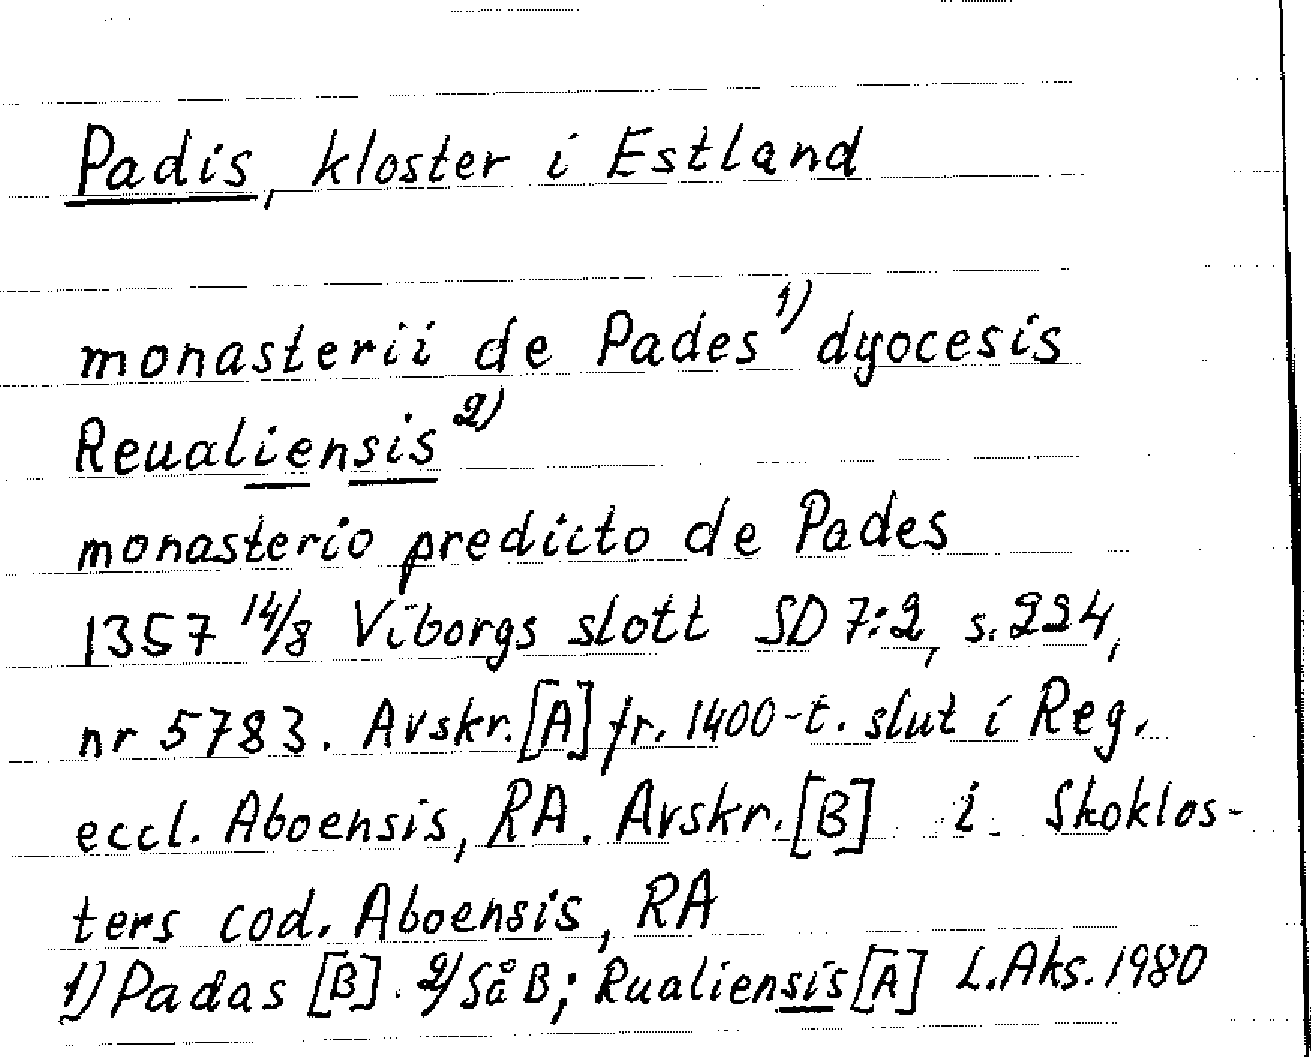 Padis, kloster i Estland
monasterii de Pades 1) dyocesis
Reualiensis 2)
monasterio predicto de Pades
1357 14/8 Viborgs slott SD 7:2, s. 224,
nr 5783. Avskr. [A] fr. 1400-t. slut i Reg.
eccl. Aboensis, RA. Avskr. [B] i Skoklos-
ters cod. Aboensis, RA
1) Padas [B]. 2) Så B; Rualiensis [A] L. Aks. 1980